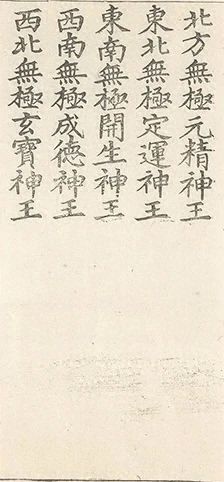 北方無極元精神王
東北無極定運神王
東南無極開生神王
西南無極成德神王
西北無極玄寶神王